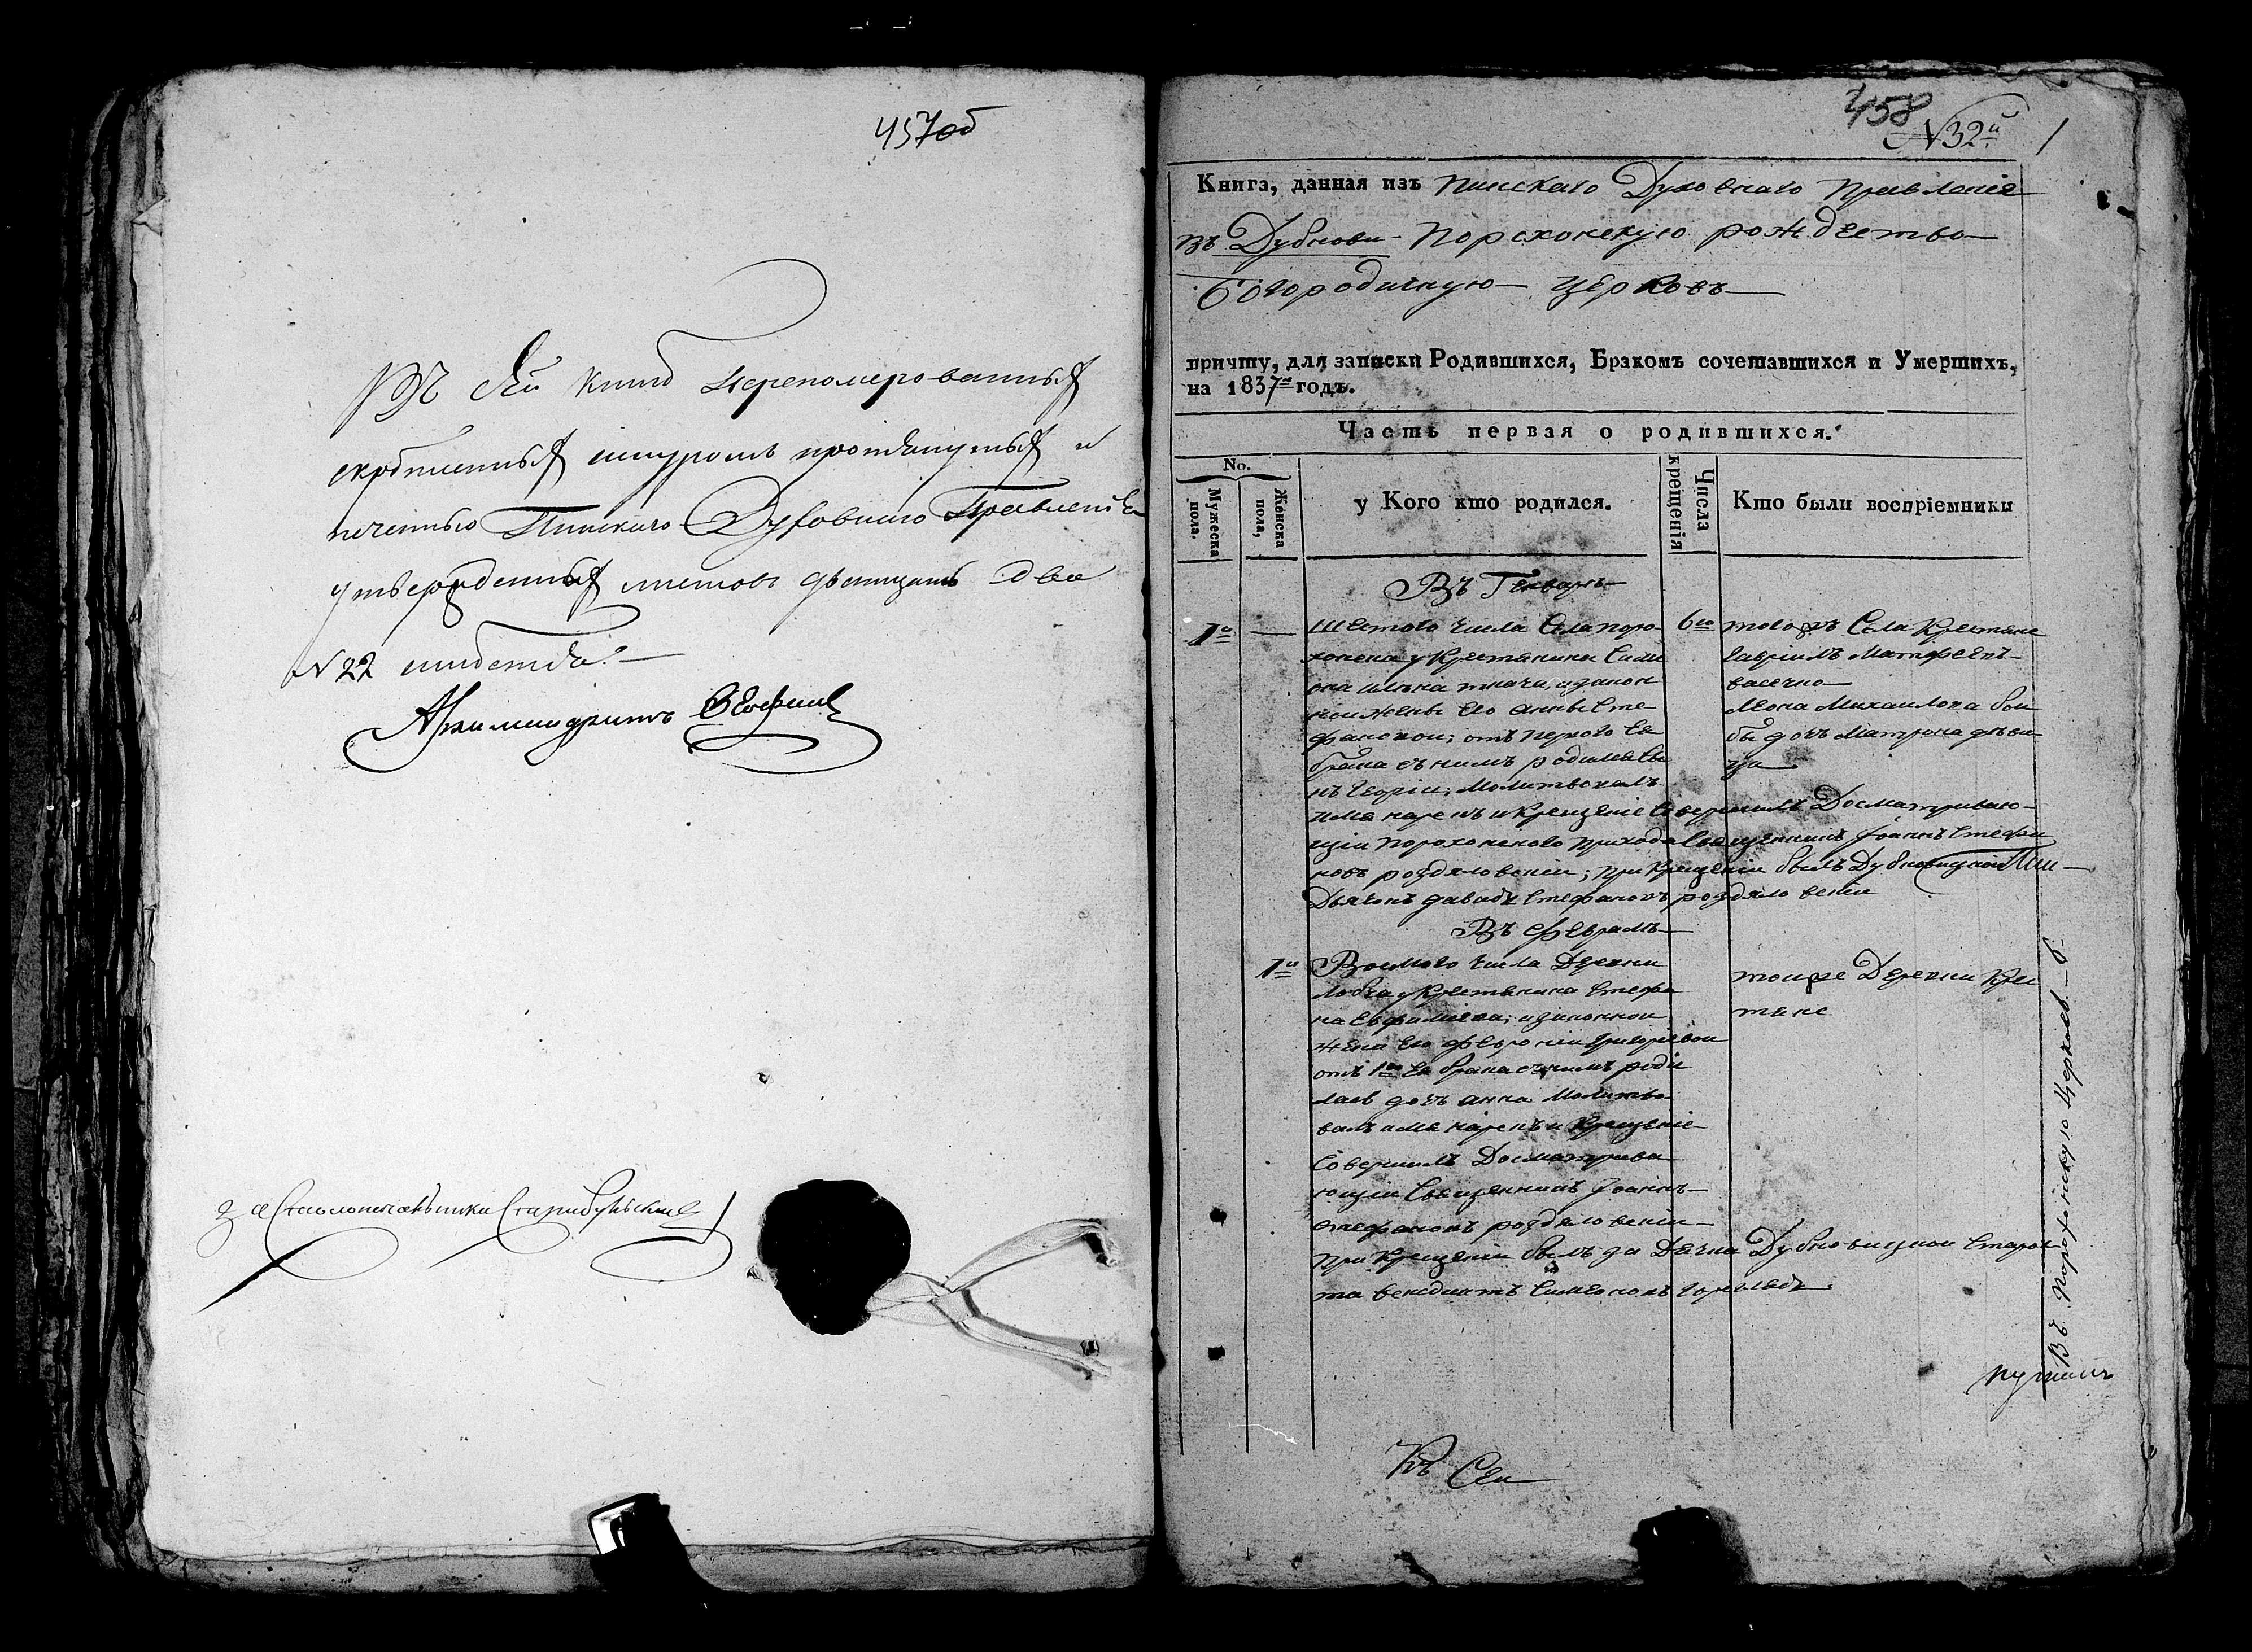 457об
Въ сей книгѣ перенумерованныхъ
скрѣпленныхъ шнуромъ протянутыхъ и
печатью Пинскаго Духовнаго Правленія
утвержденныхъ листовъ двадцать два
N 22 свидѣтел.
Архимандритъ
за Столоначальника
458
N 32й
1
Книга, данная изъ Пинскаго Духовнаго Правленія
въ Дубнови- Порохонскую рождество
Богородичную церковь
причту, для записки Родившихся, Бракомъ сочетавшихся и Умершихъ,
на 1837й годъ.
Часть первая о родившихся.
No.
Мужеска пола.
Женска пола,
у Кого кто родился.
Числа крещенія
Кто были воспріемники
Въ Генваръ
1й
Шестого числа Села поро-
хонска у Крестянина Симе
она ткача, и закон
ной жены его Анны Сте
фановой; отъ первого ея
брака съ нимъ родился сы
нъ Георгіи, Молитвовалъ
имя нарекъ и Крещеніе Совершилъ Досматриваю-
щіи Порохонского прихода Священникъ Іоаннъ Стефа
новъ роздяловскіи; при Крещеніи былъ Дубновицкои
Дьячокъ давадъ Стефановъ роздяловскіи
6го
того жъ Села Крестяне
Гавріилъ Матфеевъ
васечко
Леона Михаилова бои
бы дочъ Матрона дѣви
ца
Въ Февралъ
1й
Восмого числа Деревни
у Крестянина Стефа
на и законнои
жены его Февроніи Григоріевои
отъ 1го ея брака съ нимъ роди
лась дочъ Анна Молитво
валъ имя нарекъ и Крещеніе
Совершилъ Досматрива
ющіи Священникъ Іоаннъ
Стефановъ роздяловскіи
при Крещеніи былъ за Дячка Дубновицкои Старос
та венедиктъ Симеоновъ
тоиже Деревни Крес
тяне
Въ Порохонскую Церковь.
Къ Сей